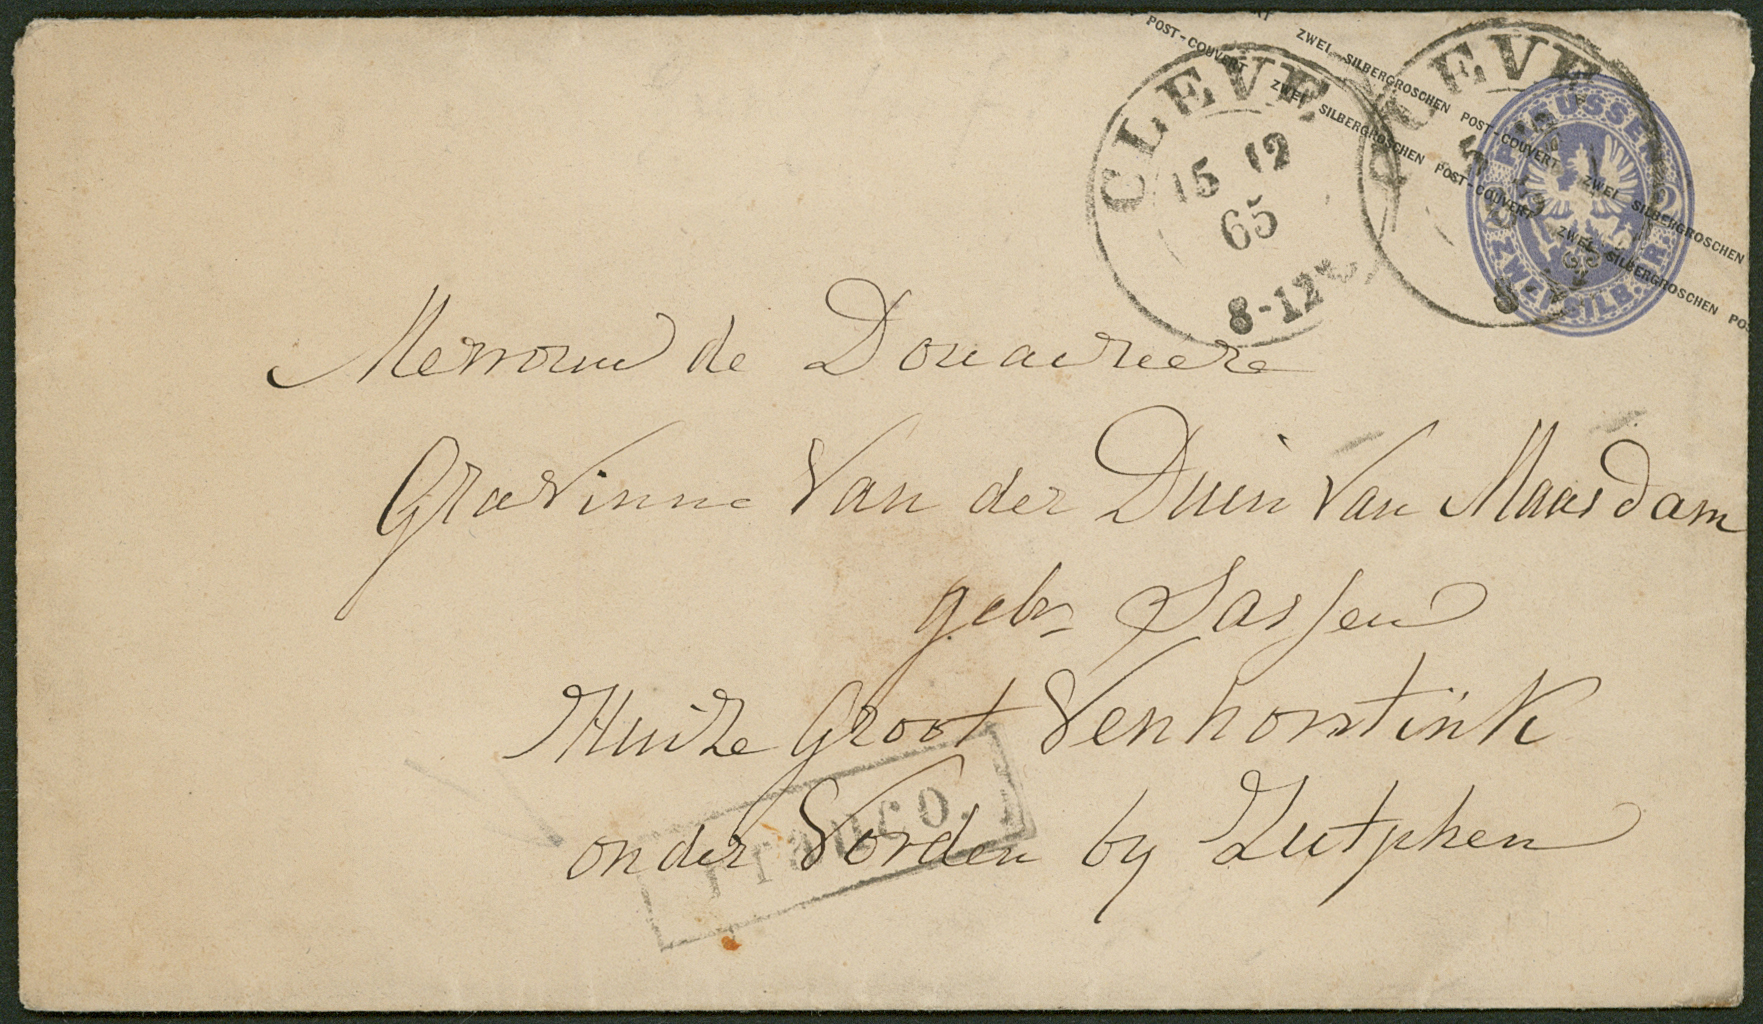 POST-COUVERT ZWEI SILBERGROSCHEN POST-COUVERT ZWEI SILBERGROSCHEN
POST-COUVERT ZWEI SILBERGROSCHEN POST-COUVERT ZWEI SILBERGROSCHEN
CLEVE
15 12
65
8-12
CLEVE
PREUSSEN
ZWEI SILB. GR.
Mevrouw de Douairiere
Gravinne Van der Duin Van Maasdam
geb. Sassen
Huize Groot Venhorstink
Franco.
onder Vorden by Zutphen